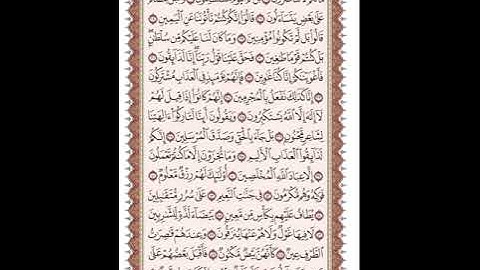 عَلَىٰ بَعْضٍ يَتَسَآءَلُونَ ۝ قَالُوٓا۟ إِنَّكُمْ كُنتُمْ تَأْتُونَنَا عَنِ ٱلْيَمِينِ
۝ قَالُوا۟ بَل لَّمْ تَكُونُوا۟ مُؤْمِنِينَ ۝ وَمَا كَانَ لَنَا عَلَيْكُم مِّن سُلْطَٰنٍۭ
بَلْ كُنتُمْ قَوْمًا طَٰغِينَ ۝ فَحَقَّ عَلَيْنَا قَوْلُ رَبِّنَآ إِنَّا لَذَآئِقُونَ ۝
فَأَغْوَيْنَٰكُمْ إِنَّا كُنَّا غَٰوِينَ ۝ فَإِنَّهُمْ يَوْمَئِذٍ فِى ٱلْعَذَابِ مُشْتَرِكُونَ
۝ إِنَّا كَذَٰلِكَ نَفْعَلُ بِٱلْمُجْرِمِينَ ۝ إِنَّهُمْ كَانُوٓا۟ إِذَا قِيلَ لَهُمْ
لَآ إِلَٰهَ إِلَّا ٱللَّهُ يَسْتَكْبِرُونَ ۝ وَيَقُولُونَ أَئِنَّا لَتَارِكُوٓا۟ ءَالِهَتِنَا
لِشَاعِرٍ مَّجْنُونٍۭ ۝ بَلْ جَآءَ بِٱلْحَقِّ وَصَدَّقَ ٱلْمُرْسَلِينَ ۝ إِنَّكُمْ
لَذَآئِقُوا۟ ٱلْعَذَابِ ٱلْأَلِيمِ ۝ وَمَا تُجْزَوْنَ إِلَّا مَا كُنتُمْ تَعْمَلُونَ
۝ إِلَّا عِبَادَ ٱللَّهِ ٱلْمُخْلَصِينَ ۝ أُو۟لَٰٓئِكَ لَهُمْ رِزْقٌ مَّعْلُومٌ ۝
فَوَٰكِهُ وَهُم مُّكْرَمُونَ ۝ فِى جَنَّٰتِ ٱلنَّعِيمِ ۝ عَلَىٰ سُرُرٍ مُّتَقَٰبِلِينَ
۝ يُطَافُ عَلَيْهِم بِكَأْسٍ مِّن مَّعِينٍۭ ۝ بَيْضَآءَ لَذَّةٍ لِّلشَّٰرِبِينَ
۝ لَا فِيهَا غَوْلٌ وَلَا هُمْ عَنْهَا يُنزَفُونَ ۝ وَعِندَهُمْ قَٰصِرَٰتُ
ٱلطَّرْفِ عِينٌ ۝ كَأَنَّهُنَّ بَيْضٌ مَّكْنُونٌ ۝ فَأَقْبَلَ بَعْضُهُمْ عَلَىٰ